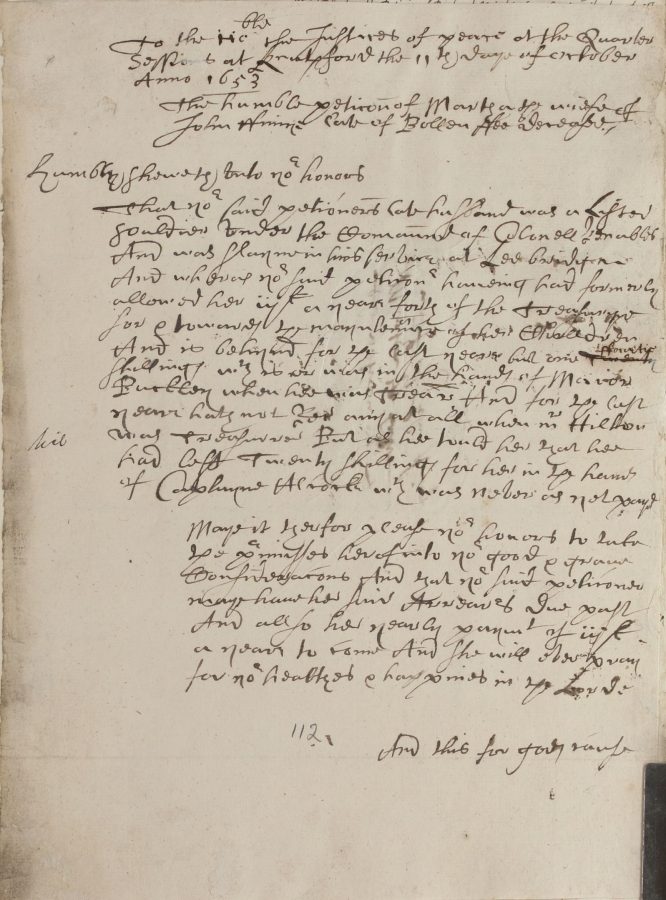 To the rig ble the Justices of peace at the Quarter
Sessions at Knutsford the 11th daye of October
Anno 1653
The humble peticon of Martha the wiefe of
John late of Bollen ffee decease
Humbly sheweth unto yor honors
That yor said petioners late husband was a Listed
Souldier under the Comannd of Colonell Venables
And was slayne in his service at
And wheras yor said peticonr haveing had formerly
allowed her iijli a yeare forth of the Treasurye
for & towards the mayntenance of her Children
And is behynd for the last yeare but one
shillings wch is or was in the hands of Maior
Buckley when hee was Treasr And for the last
yeare hath not Red any at all when mr Hilton
was Treasurer But as hee tould her that hee
had left Twenty shillings for her in the hands
of Captayne Alcock wch was never as yet payd
Maye it therfor please yor honors to take
the prmisses herof into yor good & grave
Consideracons And that yor said peticoner
may have her said Arreares due past
And allso her yearly paymt of iijli
a yeare to come And she will ever pray
for yor healthes & happines in the Lorde
112
And this for gods cause